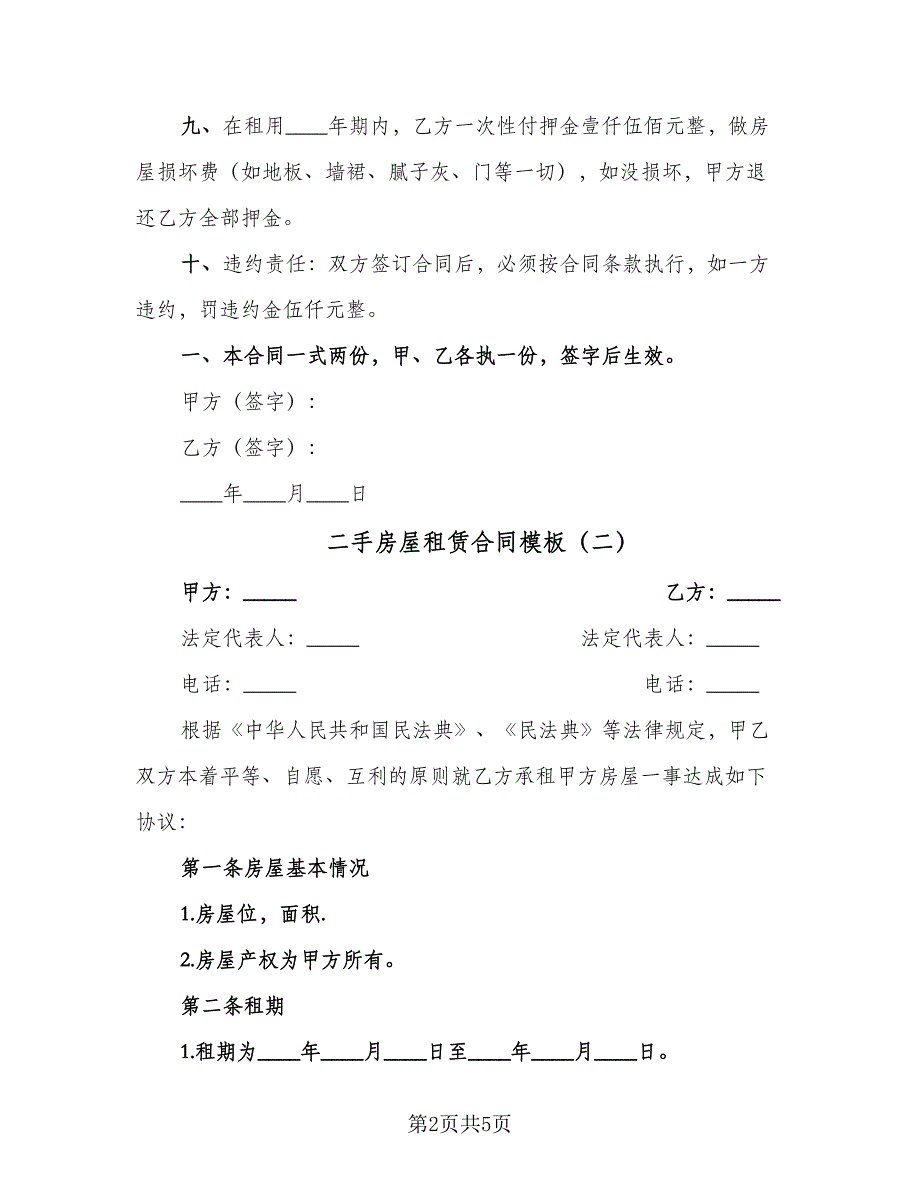 九、在租用____年期内，乙方一次性付押金壹仟伍佰元整，做房
屋损坏费（如地板、墙裙、腻子灰、门等一切），如没损坏，甲方退
还乙方全部押金。
十、违约责任：双方签订合同后，必须按合同条款执行，如一方
违约，罚违约金伍仟元整。
一、本合同一式两份，甲、乙各执一份，签字后生效。
甲方（签字）：
乙方（签字）：
____年____月____日
二手房屋租赁合同模板（二）
甲方：_____ 乙方：_____
法定代表人：_____ 法定代表人：_____
电话：_____ 电话：_____
根据《中华人民共和国民法典》、《民法典》等法律规定，甲乙
双方本着平等、自愿、互利的原则就乙方承租甲方房屋一事达成如下
协议：
第一条房屋基本情况
1.房屋位，面积.
2.房屋产权为甲方所有。
第二条租期
1.租期为____年____月____日至____年____月____日。
第2页共5页